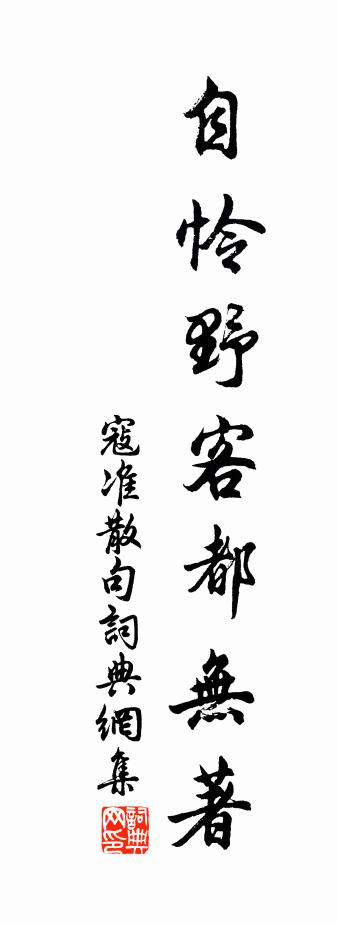 自怜野客都無著
寇准散句詞典網集
詞典网印